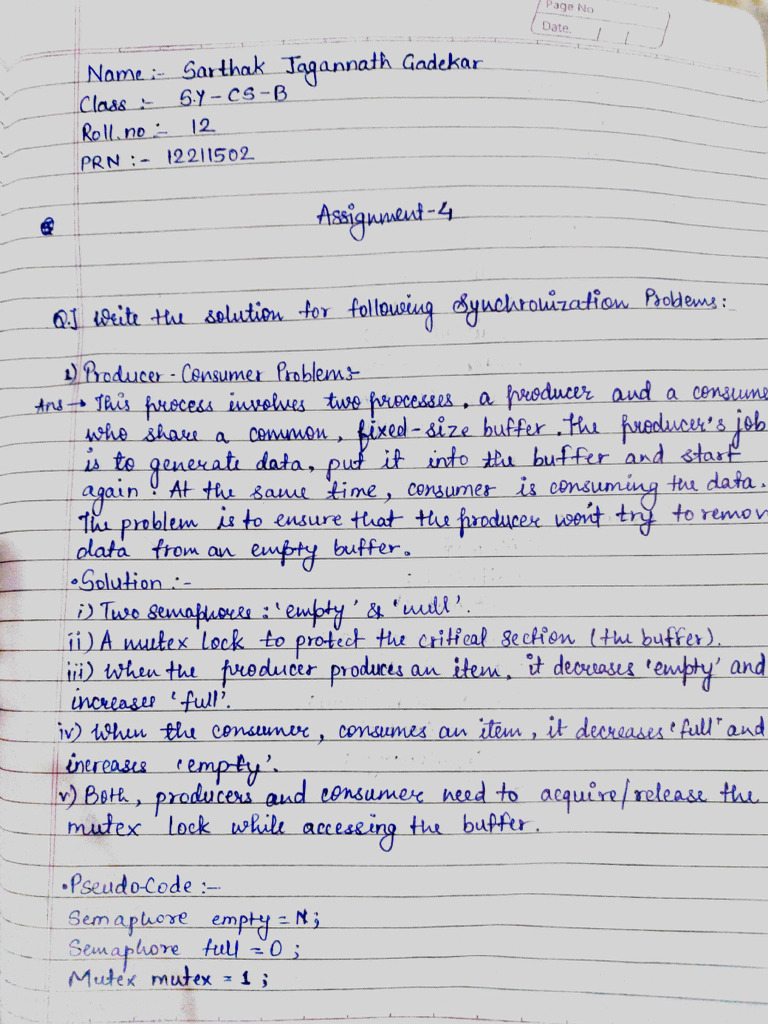 Page No
Date. / /
Name :- Sarthak Jagannath Gadekar
Class :- S.Y-CS-B
Roll.no :- 12
PRN :- 12211502
Assignment-4
Q.] Write the solution for following Synchronization Problems:
1) Producer - Consumer Problems-
Ans → This process involves two processes, a producer and a consume
who share a common, fixed-size buffer. The producer's job
is to generate data, put it into the buffer and start
again. At the same time, consumer is consuming the data.
The problem is to ensure that the producer won't try to remov
data from an empty buffer.
• Solution :-
i) Two semaphores : 'empty' & 'null'.
ii) A mutex lock to protect the critical section (the buffer).
iii) When the producer produces an item, it decreases 'empty' and
increases 'full'.
iv) When the consumer, consumes an item, it decreases 'full' and
increases 'empty'.
v) Both, producers and consumer need to acquire/release the
mutex lock while accessing the buffer.
• Pseudo-Code :-
Semaphore empty = N;
Semaphore full = 0 ;
Mutex mutex = 1 ;